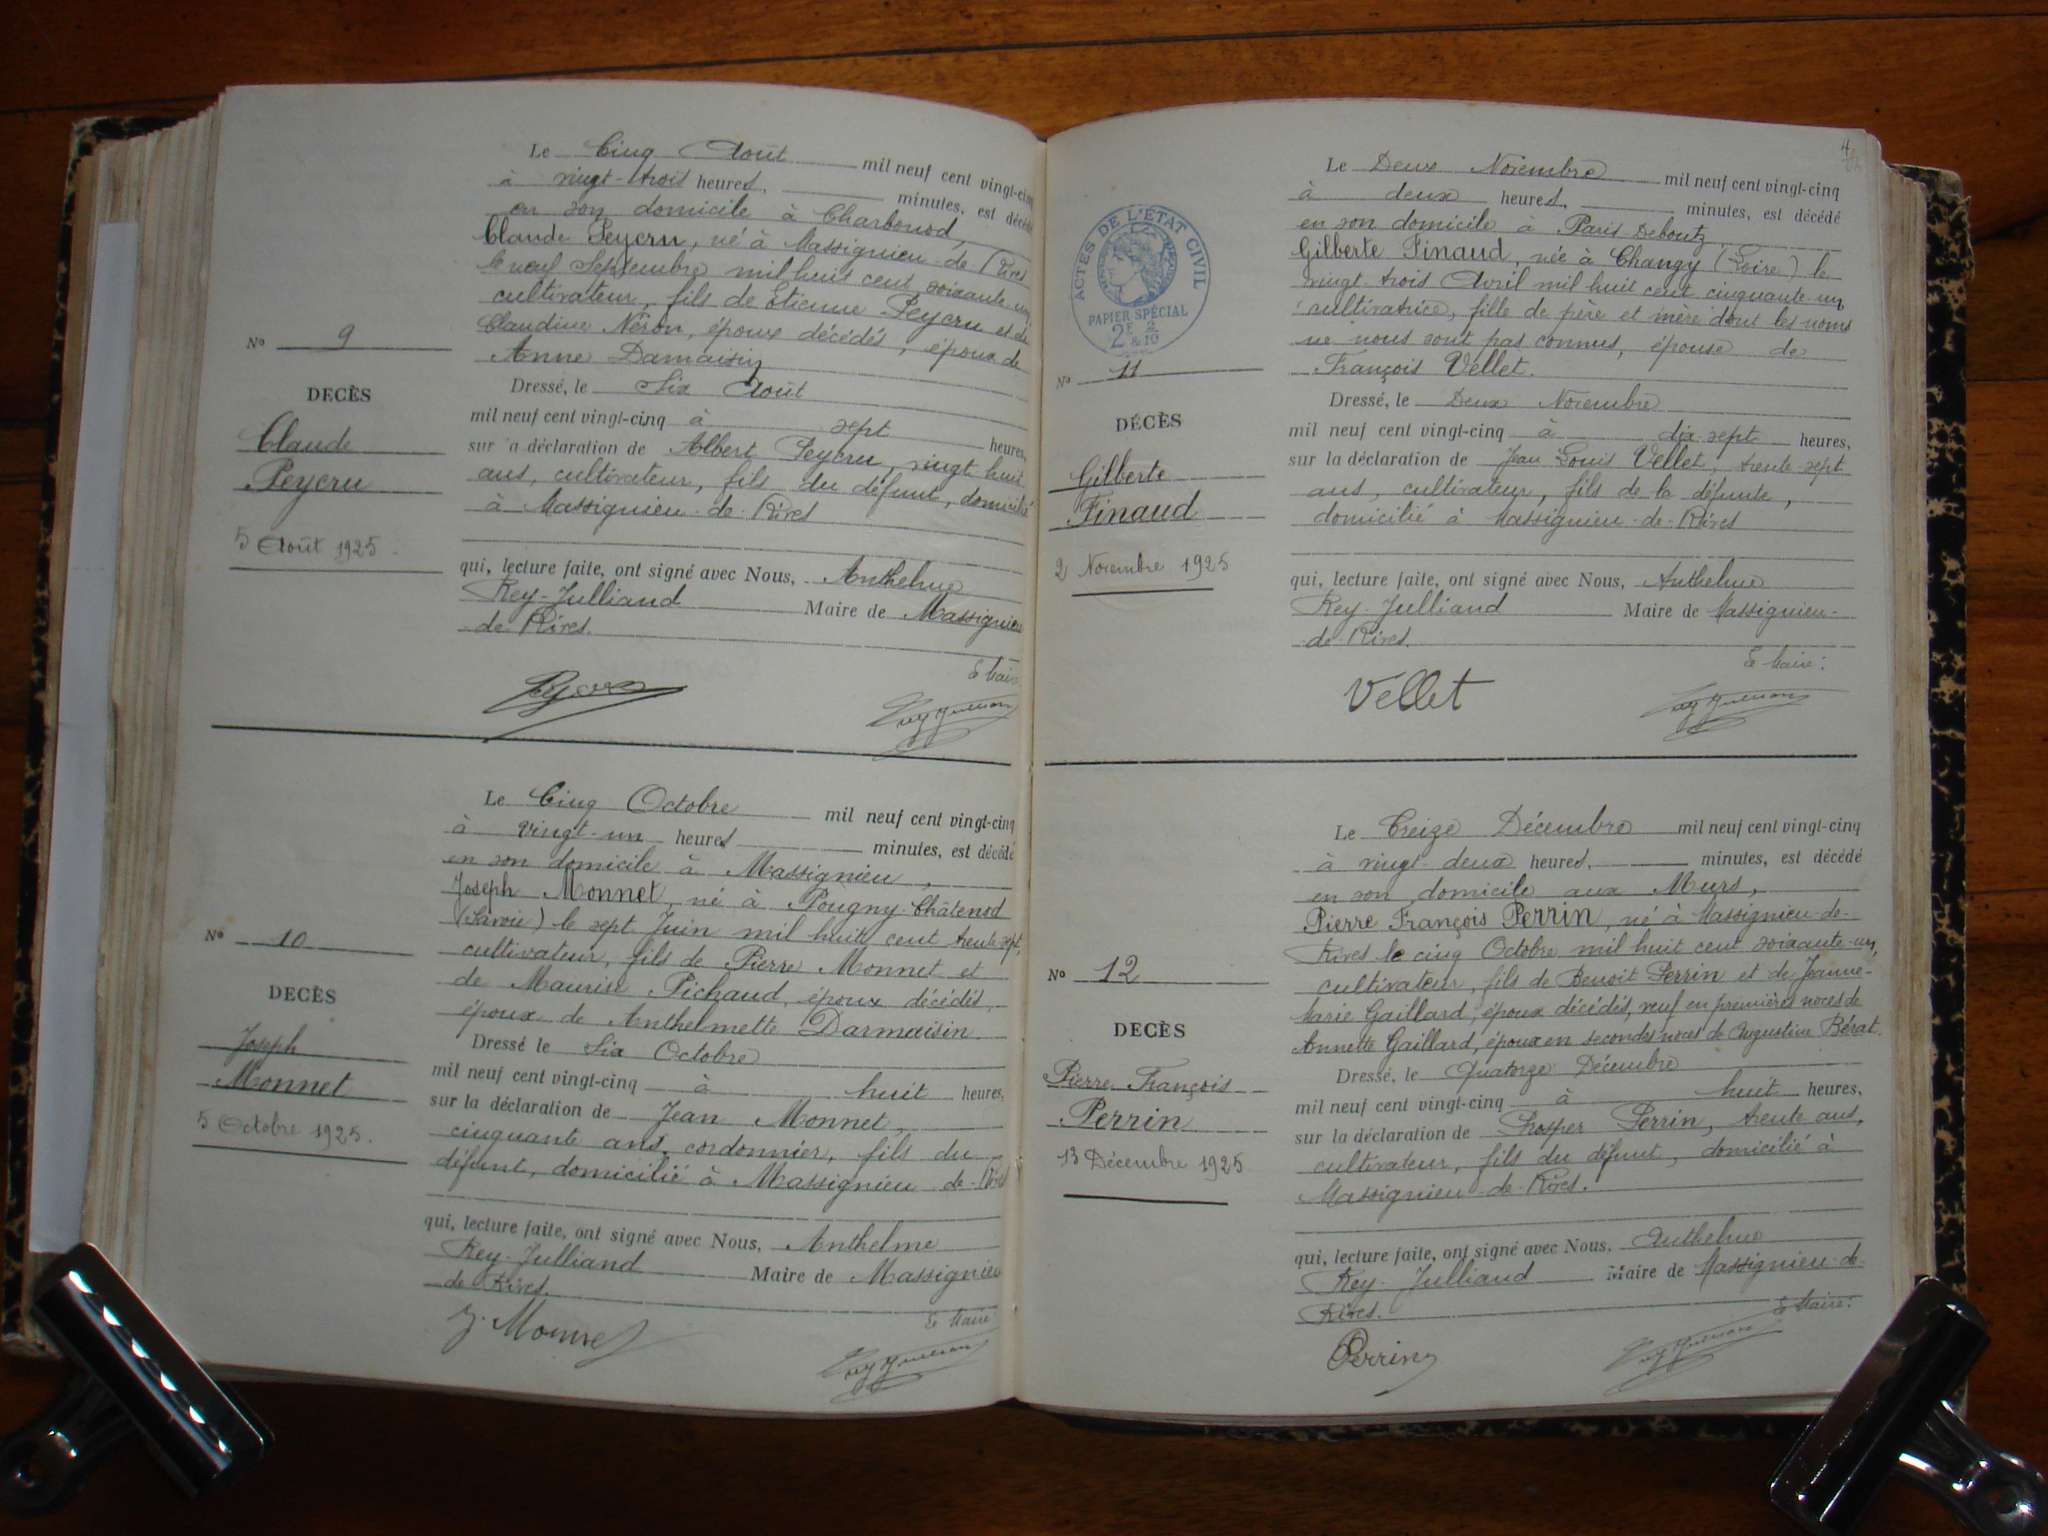 Le Cinq Août mil neuf cent vingt-cinq
à vingt-trois heures, minutes, est décédé
en son domicile à Charbonod,
Claude Peycru, né à Massignieu-de-Rives
le neuf Septembre mil huit cent soixante-un,
cultivateur, fils de Etienne Peycru et de
Claudine Néron, époux décédés, époux de
Anne Damaisin
Nº 9
DECÈS
Claude
Peycru
5 Août 1925.
Dressé, le Six Août
mil neuf cent vingt-cinq à sept heures,
sur a déclaration de Albert Peycru, vingt huit
ans, cultivateur, fils du défunt, domicilié
à Massignieu-de-Rives
qui, lecture faite, ont signé avec Nous, Anthelme
Rey-Julliand Maire de Massignieu
de Rives.
Le Maire
Peycru
Le Cinq Octobre mil neuf cent vingt-cinq
à vingt-un heures minutes, est décédé
en son domicile à Massignieu,
Joseph Monnet, né à Pougny-Châtenod
(Savoie) le sept Juin mil huit cent trente sept,
cultivateur, fils de Pierre Monnet et
de Maurise Pichaud, époux décédés,
époux de Anthelmette Darmaisin.
Nº 10
DECÈS
Joseph
Monnet
5 Octobre 1925.
Dressé le Six Octobre
mil neuf cent vingt-cinq à huit heures,
sur la déclaration de Jean Monnet,
cinquante ans, cordonnier, fils du
défunt, domicilié à Massignieu de-Rives
qui, lecture faite, ont signé avec Nous, Anthelme
Rey-Julliand Maire de Massignieu
de Rives.
Le Maire:
J. Monnet
4
ACTES DE L'ÉTAT CIVIL
PAPIER SPÉCIAL
2E 2 & 10
Le Deux Novembre mil neuf cent vingt-cinq
à deux heures, minutes, est décédé
en son domicile à Paris Deboutz
Gilberte Finaud, née à Changy (Loire) le
vingt-trois Avril mil huit cent cinquante-un,
cultivatrice, fille de père et mère dont les noms
ne nous sont pas connus, épouse de
François Vellet.
Nº 11
DÉCÈS
Gilberte
Finaud
2 Novembre 1925
Dressé, le Deux Novembre
mil neuf cent vingt-cinq à dix-sept heures,
sur la déclaration de Jean Louis Vellet, trente-sept
ans, cultivateur, fils de la défunte,
domicilié à Massignieu-de-Rives
qui, lecture faite, ont signé avec Nous, Anthelme
Rey-Julliand Maire de Massignieu-
de-Rives.
Le Maire:
Vellet
Le Treize Décembre mil neuf cent vingt-cinq
à vingt-deux heures, minutes, est décédé
en son domicile aux Murs,
Pierre François Perrin, né à Massignieu-de-
Rives le cinq Octobre mil huit cent soixante-un,
cultivateur, fils de Benoit Perrin et de Jeanne-
Marie Gaillard, époux décédés, veuf en premières noces de
Annette Gaillard, époux en secondes noces de Augustine Bérat.
Nº 12
DECÈS
Pierre François
Perrin
13 Décembre 1925
Dressé, le Quatorze Décembre
mil neuf cent vingt-cinq à huit heures,
sur la déclaration de Prosper Perrin, trente ans,
cultivateur, fils du défunt, domicilié à
Massignieu-de-Rives.
qui, lecture faite, ont signé avec Nous, Anthelme
Rey-Julliand Maire de Massignieu-de-
Rives.
Le Maire:
Perrin